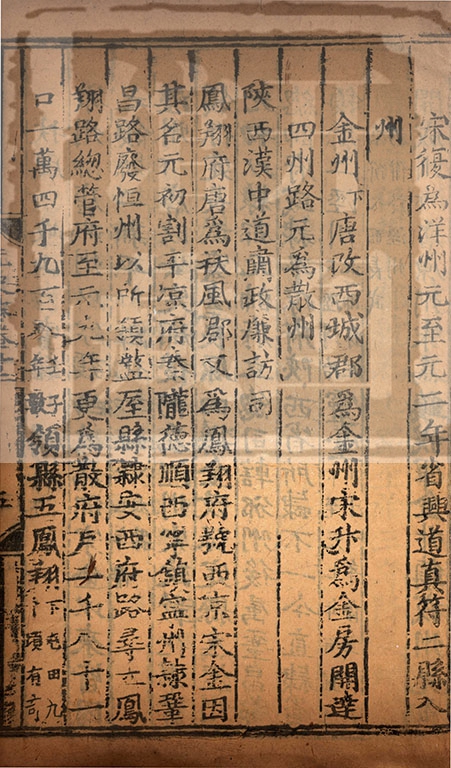 宋復為洋州元至元二年省興道真符二縣入
州
金州下唐改西城郡為金州宋升為金房開達
四州路元為散州
陝西漢中道肅政廉訪司
鳳翔府唐為扶風郡又為鳳翔府號西京宋金因
其名元初割平凉府秦隴德順西寧鎮寧州隸鞏
昌路廢恒州以所領盩厔縣隸安西府路尋立鳳
翔路總管府至元九年更為散府戶二千八十一
口一萬四千九百八年壬子數領縣五鳳翔下屯田九十頃有奇